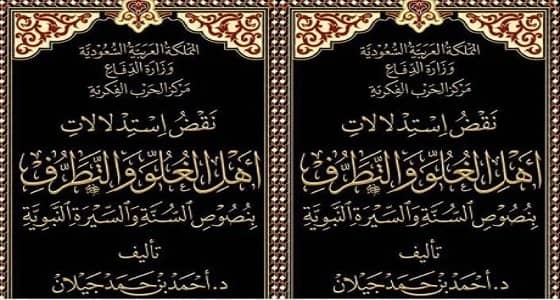 المملكة العربية السعودية
وزارة الدفاع
مركز الحرب الفكرية
نقض استدلالات
أهل الغلو والتطرف
بنصوص السنة والسيرة النبوية
تأليف
د. أحمد بن حمد جيلان
المملكة العربية السعودية
وزارة الدفاع
مركز الحرب الفكرية
نقض استدلالات
أهل الغلو والتطرف
بنصوص السنة والسيرة النبوية
تأليف
د. أحمد بن حمد جيلان